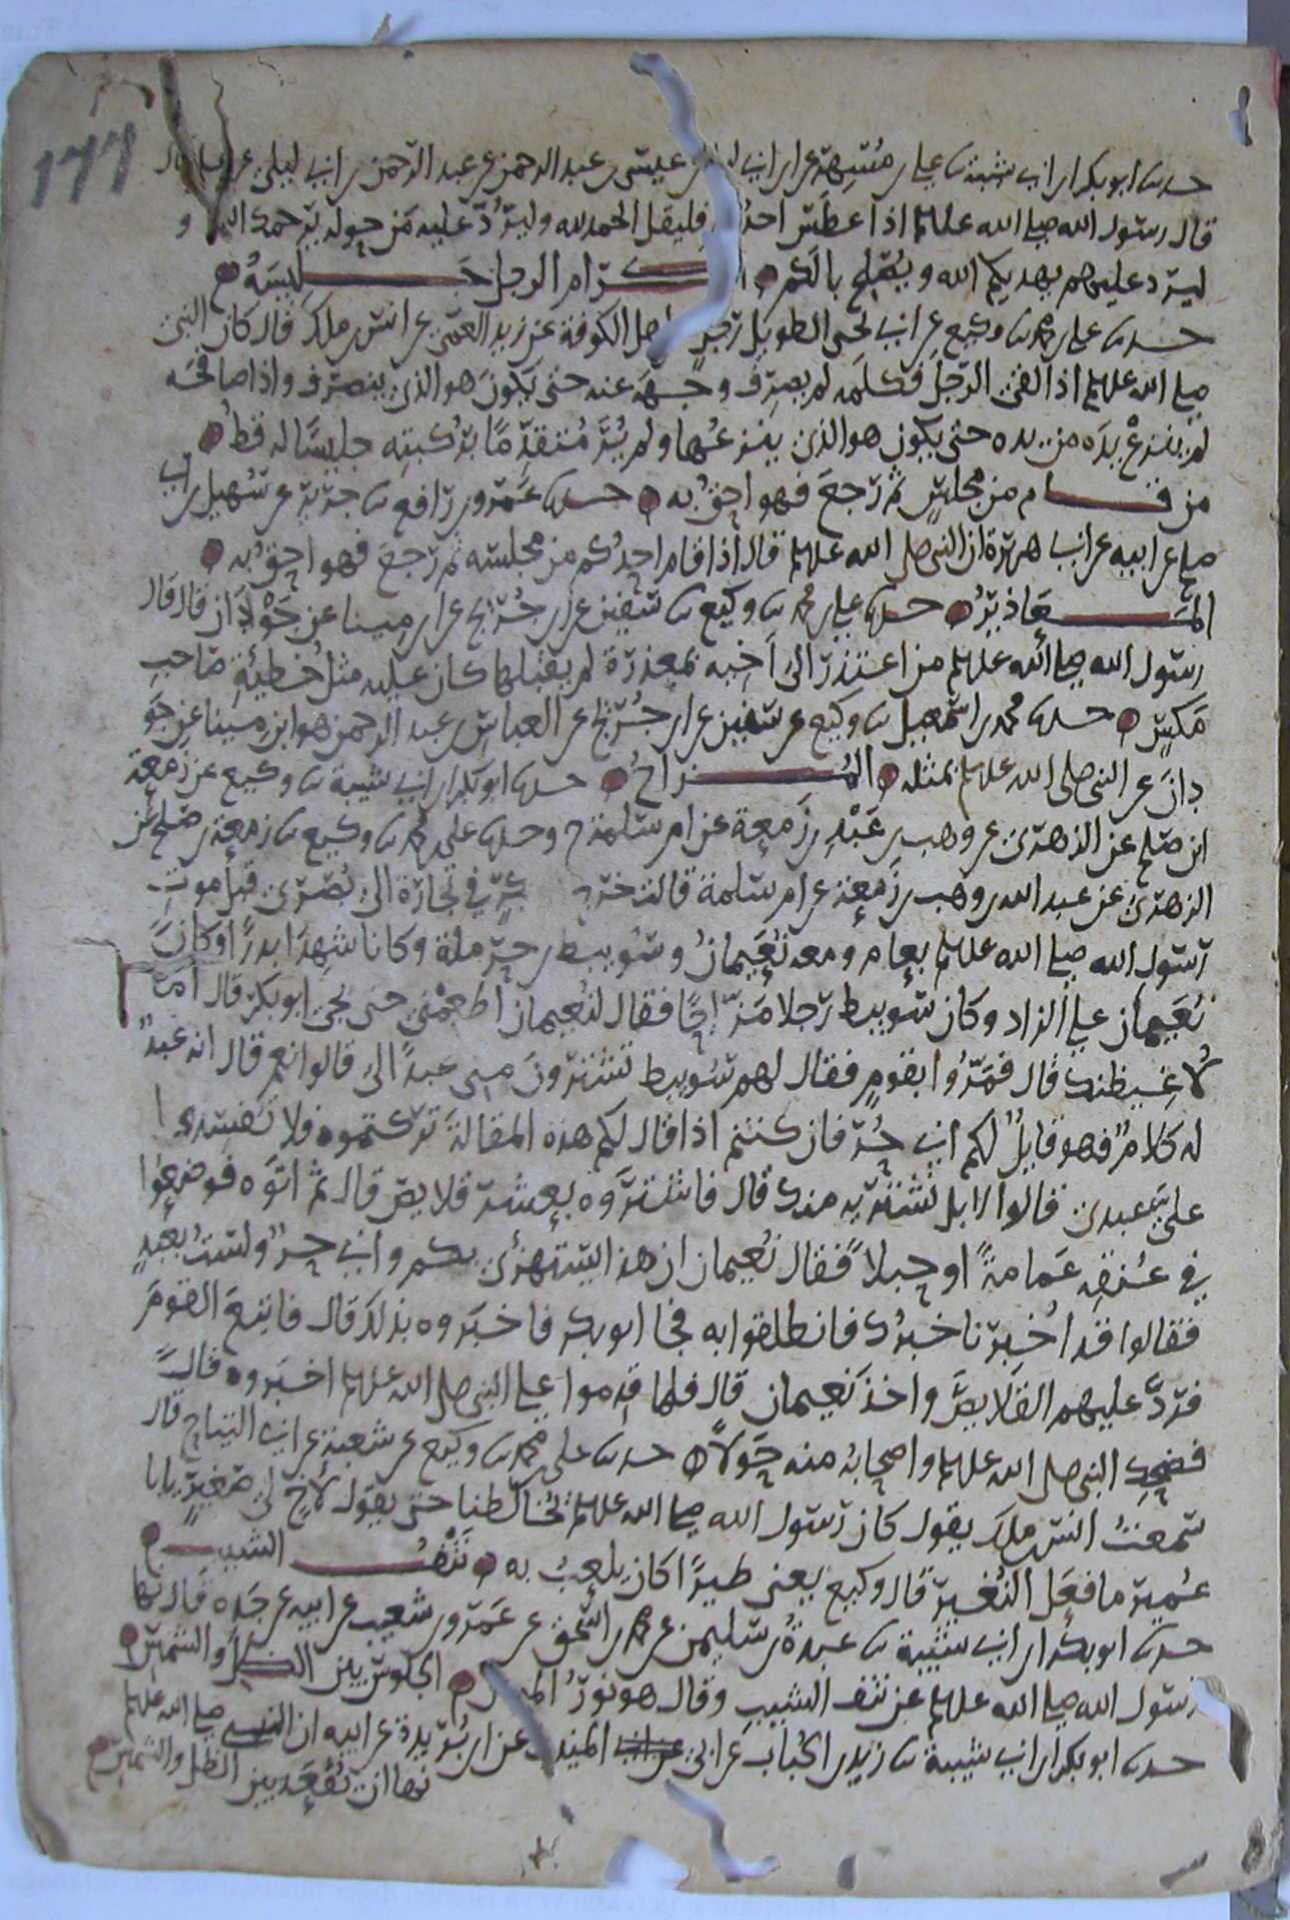 177
حدثنا ابو بكر ابن ابي شيبة ثنا علي بن مسهر عن ابن ابي ليلى عن عيسى بن عبد الرحمن عن عبد الرحمن بن ابي ليلى عن علي قال
قال رسول الله صلى الله عليه وسلم اذا عطس احدكم فليقل الحمد لله وليرد عليه من حوله يرحمك الله و
ليرد عليهم يهديكم الله ويصلح بالكم اكرام الرجل جليسه
حدثنا علي بن محمد ثنا وكيع عن ابي يحيى الطويل رجل من اهل الكوفة عن زيد العمي عن انس بن ملك قال كان النبي
صلى الله عليه وسلم اذا لقي الرجل فكلمه لم يصرف وجهه عنه حتى يكون هو الذي ينصرف واذا صافحه
لم ينزع يده من يده حتى يكون هو الذي ينزعها ولم ير متقدما بركبته جليسا له قط
من قام من مجلس ثم رجع فهو احق به حدثنا عمرو بن رافع ثنا جرير عن سهيل بن ابي
صلح عن ابيه عن ابي هريرة ان النبي صلى الله عليه وسلم قال اذا قام احدكم من مجلسه ثم رجع فهو احق به
المعاذير حدثنا علي بن محمد ثنا وكيع ثنا سفين عن ابن جريج عن ابن مينا عن جودان قال قال
رسول الله صلى الله عليه وسلم من اعتذر الى اخيه بمعذرة لم يقبلها كان عليه مثل خطيئة صاحب
مكس حدثنا محمد بن اسمعيل ثنا وكيع عن سفين عن ابن جريج عن العباس بن عبد الرحمن هو ابن مينا عن جو
دان عن النبي صلى الله عليه وسلم بمثله المزاح حدثنا ابو بكر ابن ابي شيبة ثنا وكيع عن زمعة
ابن صلح عن الزهري عن وهب بن عبد بن زمعة عن ام سلمة ح وحدثنا علي بن محمد ثنا وكيع ثنا زمعة بن صلح عن
الزهري عن عبد الله بن وهب بن زمعة عن ام سلمة قالت خرج بكر في تجارة الى بصرى قبل موت
رسول الله صلى الله عليه وسلم بعام ومعه نعيمان وسويبط بن حرملة وكانا شهدا بدرا وكان
نعيمان على الزاد وكان سويبط رجلا مزاحا فقال لنعيمان اطعمني حتى يجي ابو بكر قال اما
لاغيظنك قال فمروا بقوم فقال لهم سويبط تشترون مني عبدا لي قالوا نعم قال انه عبد
له كلام وهو قايل لكم اني حر فان كنتم اذا قال لكم هذه المقالة تركتموه فلا تفسدوا
علي عبدي قالوا لا بل نشتريه منك قال فاشتروه بعشر قلايص قال ثم اتوه فوضعوا
في عنقه عمامة او حبلا فقال نعيمان ان هذا يستهزئ بكم واني حر ولست بعبد
فقالوا قد اخبرنا خبرك فانطلقوا به فجا ابو بكر فاخبروه بذلك قال فاتبع القوم
فرد عليهم القلايص واخذ نعيمان قال فلما قدموا على النبي صلى الله عليه وسلم اخبروه قال
فضحك النبي صلى الله عليه وسلم واصحابه منه حولا حدثنا علي بن محمد ثنا وكيع عن شعبة عن ابي التياح قال
سمعت انس بن ملك يقول كان رسول الله صلى الله عليه وسلم يخالطنا حتى يقول لاخ لي صغير يا با
عمير ما فعل النغير قال وكيع يعني طيرا كان يلعب به نتف الشيب
حدثنا ابو بكر ابن ابي شيبة ثنا عبدة بن سليمن عن محمد بن اسحق عن عمرو بن شعيب عن ابيه عن جده قال نها
رسول الله صلى الله عليه وسلم عن نتف الشيب وقال هو نور المؤمن الجلوس بين الظل والشمس
حدثنا ابو بكر ابن ابي شيبة ثنا زيد بن الحباب عن ابي المنيب عن ابن بريدة عن ابيه ان النبي صلى الله عليه وسلم
نها ان يقعد بين الظل والشمس